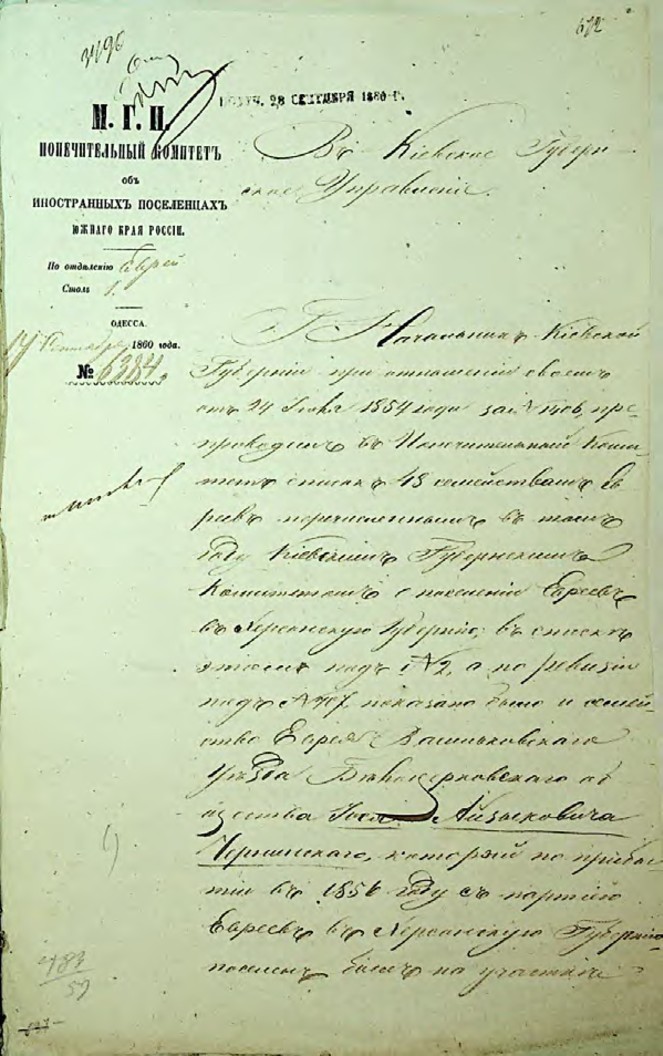 672
3496
Получ. 28 СЕНТЯБРЯ 1860 г.
М. Г. И.
ПОПЕЧИТЕЛЬНЫЙ КОМИТЕТЪ
объ
ИНОСТРАННЫХЪ ПОСЕЛЕНЦАХЪ
ЮЖНАГО КРАЯ РОССІИ.
По отдѣленію Еврей
Столъ 1.
ОДЕССА.
17 Сентября 1860 года.
№ 6384.
Въ Кіевское Губерн-
ское Управленіе.
Г. Начальникъ Кіевской
Губерніи при отношеніи своемъ
отъ 24 1854 года за №
въ Попечительный Коми-
тетъ списокъ 48 семействамъ Ев
реевъ перечисленнымъ въ томъ
году Кіевскимъ Губернскимъ
Комитетомъ о поселеніи Евреевъ
въ Херсонскую Губернію; въ спискѣ
этомъ подъ №2, а по ревизіи
подъ № показано было и семей-
ство Еврея Васильковскаго
Уѣзда Бѣлоцерковскаго об
щества Айзиковича
который по прибы-
тіи въ 1856 году съ партіею
Евреевъ въ Херсонскую Губернію
поселенъ былъ на участкѣ
483
59